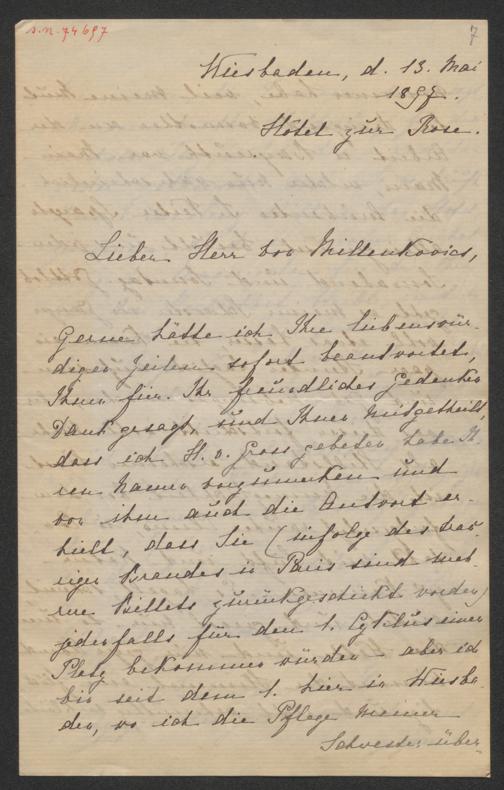 s.n. 74697
7
Wiesbaden, d. 13. Mai
1897.
Hôtel zur Rose.
Lieber Herr von Millenkovics,
Gerne hätte ich Ihre liebenswür-
digen Zeilen sofort beantwortet,
Ihnen für Ihr freundliches Gedenken
Dank gesagt und Ihnen mitgetheilt,
dass ich H. v. Gross gebeten habe Ih-
ren Namen vorzumerken und
von ihm auch die Antwort er-
hielt, dass Sie (infolge des trau-
rigen Brandes in Paris sind meh-
rere Billets zurückgeschickt worden)
jedenfalls für den 1. Cyklus einen
Platz bekommen würden – aber ich
bin seit dem 1. hier in Wiesba-
den, wo ich die Pflege meiner
Schwester über-